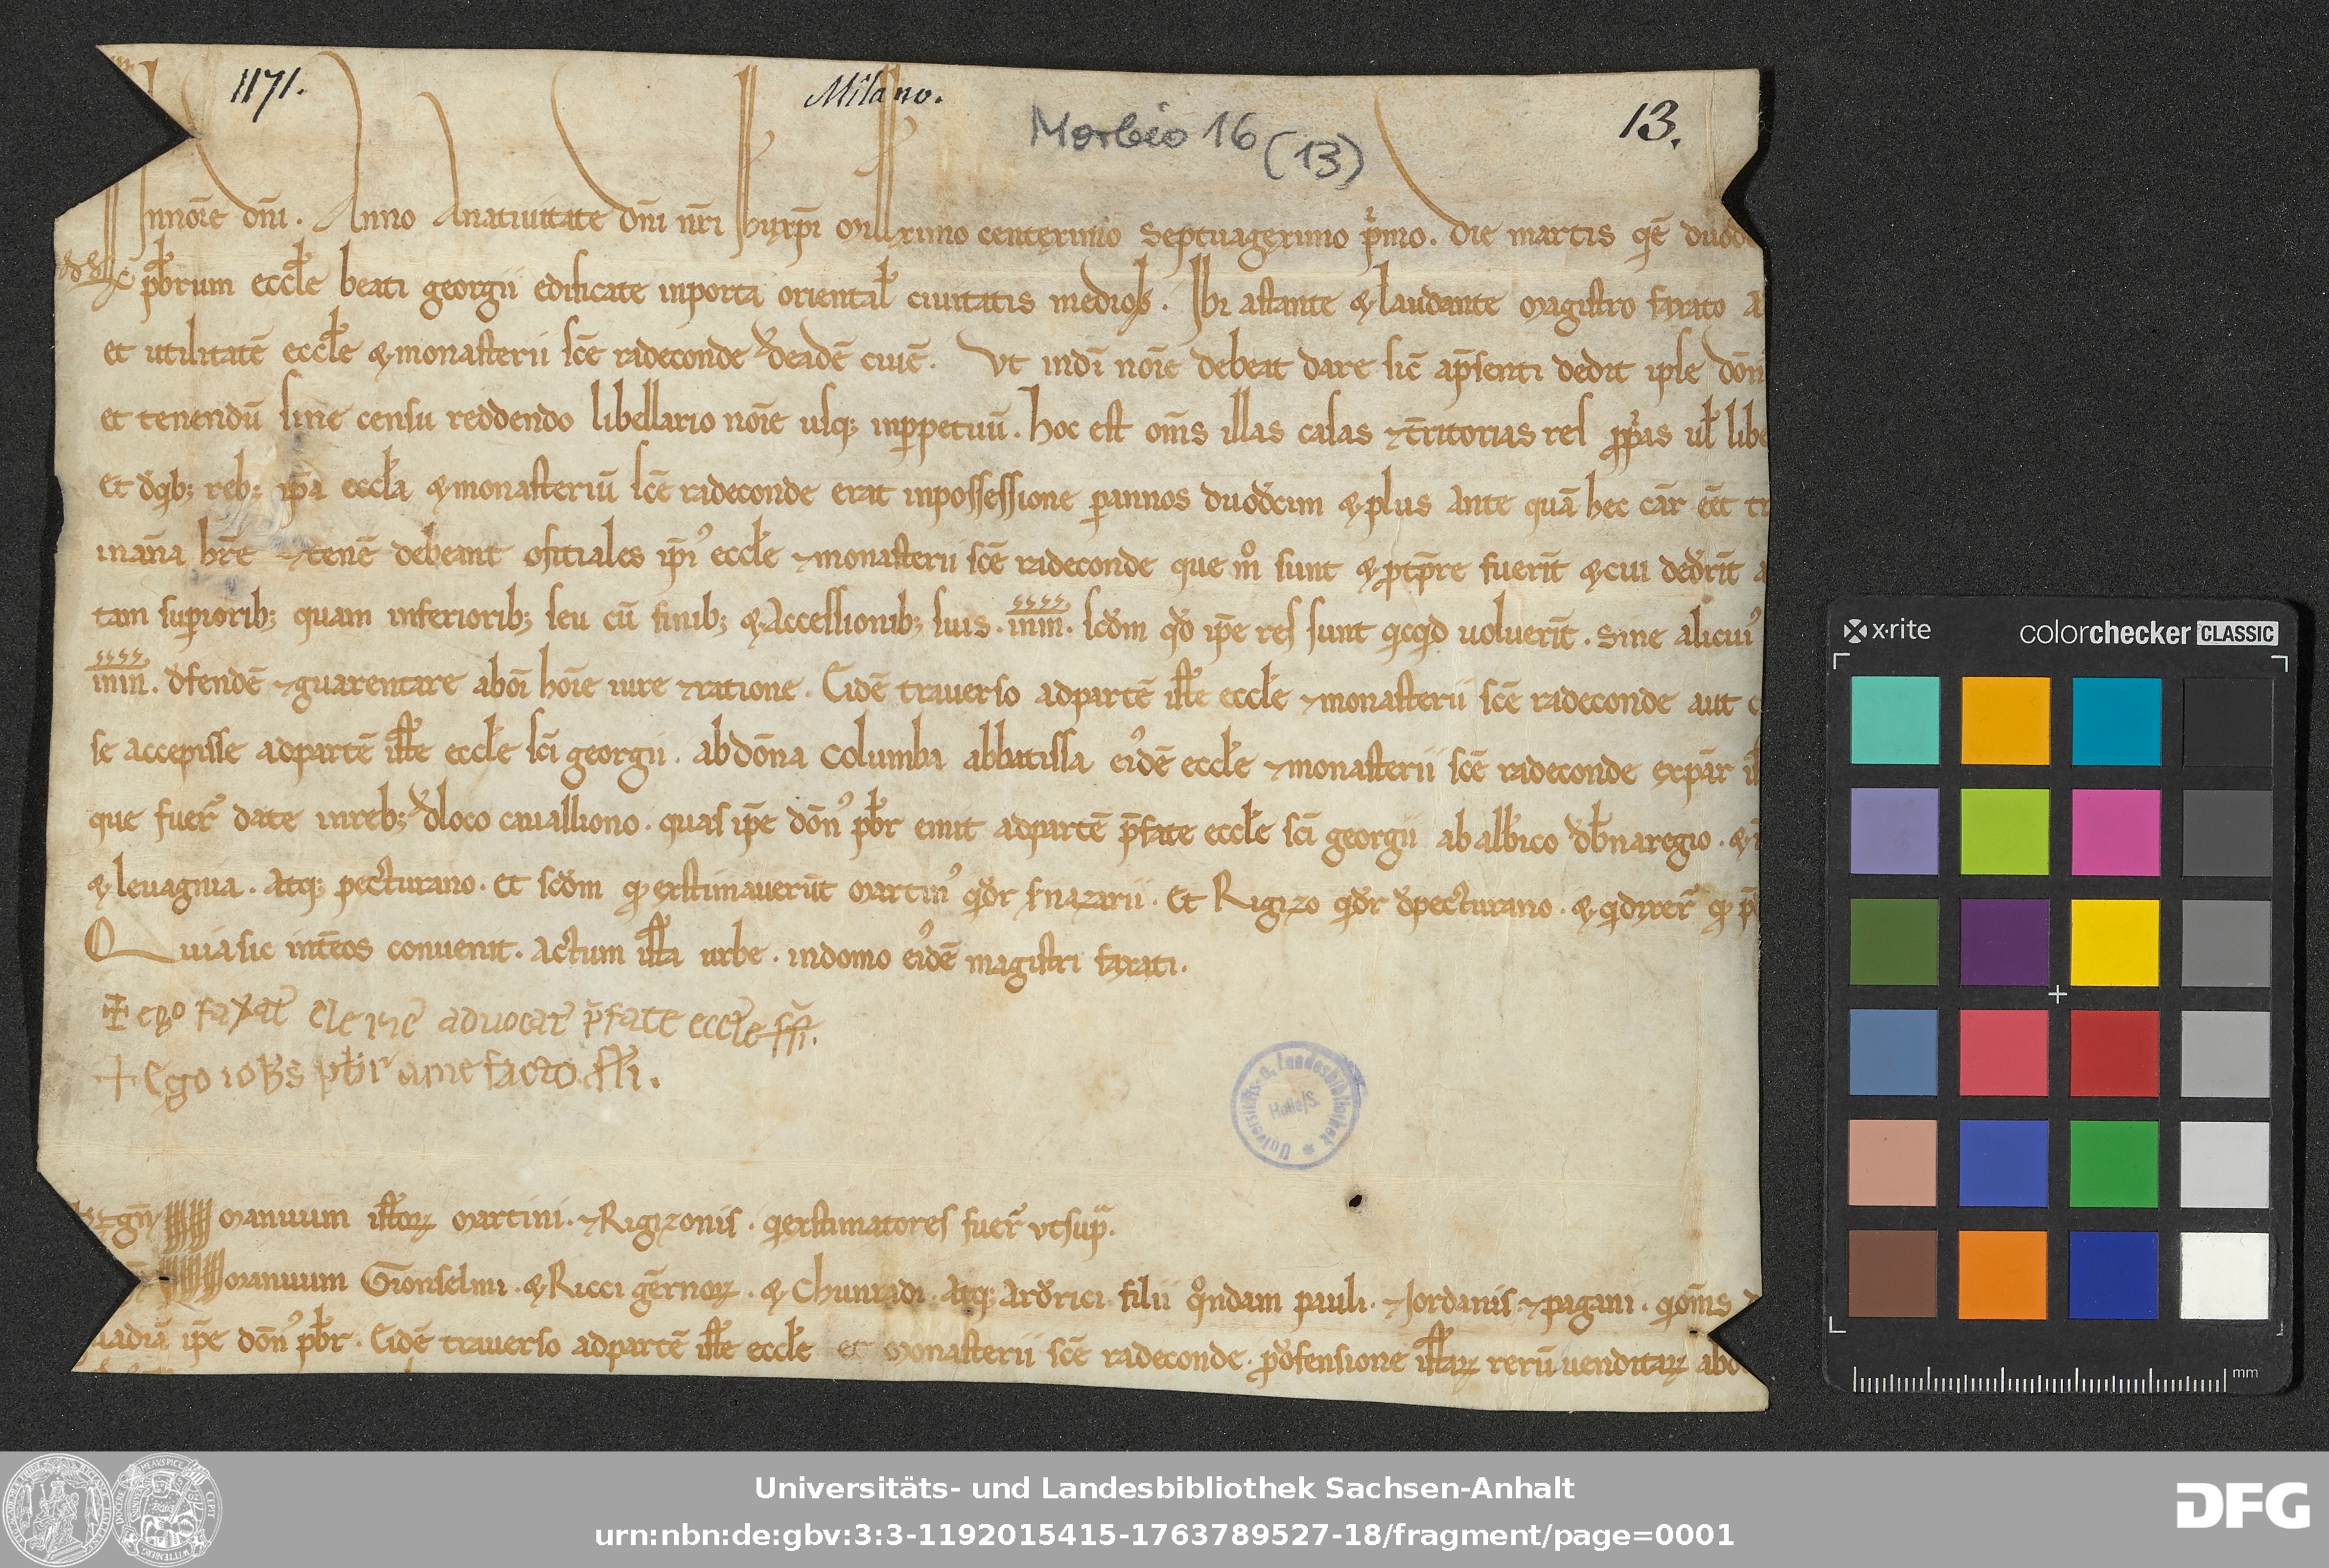 1171.
Milano.
Morbio 16 (13)
13.
In noīe dn̄i. Anno Anatiuitate dn̄i nr̄i ihu xp̄i millximo centeximo Septuageximo p̓mo. Die martis qē duod
pb̄rum eccl̄e beati georgii edificate inporta oriental̄ ciuitatis mediol̄. Ibi astante & laudante magistro faxato
et utilitatē eccl̄e & monasterii sc̄e radeconde deadē ciuē. Vt indī noīe debeat dare sic̄ ap̄senti dedit ipse dōn
et tenendū sine censu reddendo libellario noīe usq; inperpetuū. hoc est om̄s illas casas & t̄ritorias res ul̄ libe
et dq̄b; reb; ip̄a eccl̄a & monasteriū sc̄e radeconde erat inpossessione p annos duodcim & plus ante quā hec cār eēt
hr̄e & tenē debeant ofitiales ip̄i᾽ eccl̄e & monasterii sc̄e radeconde que m̊ sunt & fuerīt & cui dedrīt
tam supiorib; quam inferiorib; seu cū finib; & Accessionib; suis. inin. scd̄m qd̄ ip̄e res sunt uoluerīt. Sine alicui᾽
inin. dfendē & guarentare abōi hōie iure & ratione. Eidē trauerso adpartē ist̄e eccl̄e & monasterii sc̄e radeconde aut
se accepisse adpartē ist̄e eccl̄e sc̄i georgii. ab dōna Columba abbatissa ei᾽dē eccl̄e & monasterii sc̄e radeconde exp̄ar
que fuer̄ date inreb; dloco caualliono. quas ip̄e dōn᾽ pb̄r emit adpartē p̄fate eccl̄e sc̄i georgii ab alb̄ico naregio. &
& leuagnia. Atq; pecturano. Et scd̄m extimauerūt martin᾽ qdr s nazarii. Et Rigizo qdr dpecturano. &
Quia sic int̄eos conuenit. Actum ist̄a urbe. indomo ei᾽dē magistri faxati.
+ ego faxat᾽ cleric᾽ aduocat᾽ p̄fate eccl̄e ss̄.
+ Ego iohs pb̄r a me facto ss̄i.
manuum ist̄oꝝ martini. & Rigizonis. q extimatores fuer̄ ut sup̄.
manuum Gionselmi. & Ricci ḡernoꝝ. & Chunradi. Atq; Ardrici filii q̊ndam pauli. & Jordanis. & pagani. q om̄s
uadiā ip̄e dōn᾽ pb̄r. Eidē trauerso adpartē ist̄e eccl̄e et monasterii sc̄e radeconde. p dfensione ist̄aꝝ rerū uenditaꝝ abo
Universitäts- u. Landesbibliothek
Halle/S.
x·rite
colorchecker CLASSIC
mm
Universitäts- und Landesbibliothek Sachsen-Anhalt
urn:nbn:de:gbv:3:3-1192015415-1763789527-18/fragment/page=0001
DFG